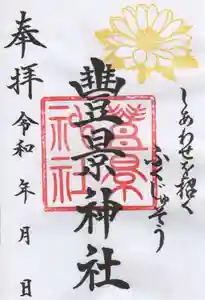 しあわせを招く
ふくじゅそう
豐景神社
奉拝
令和 年 月 日
豐景
神社